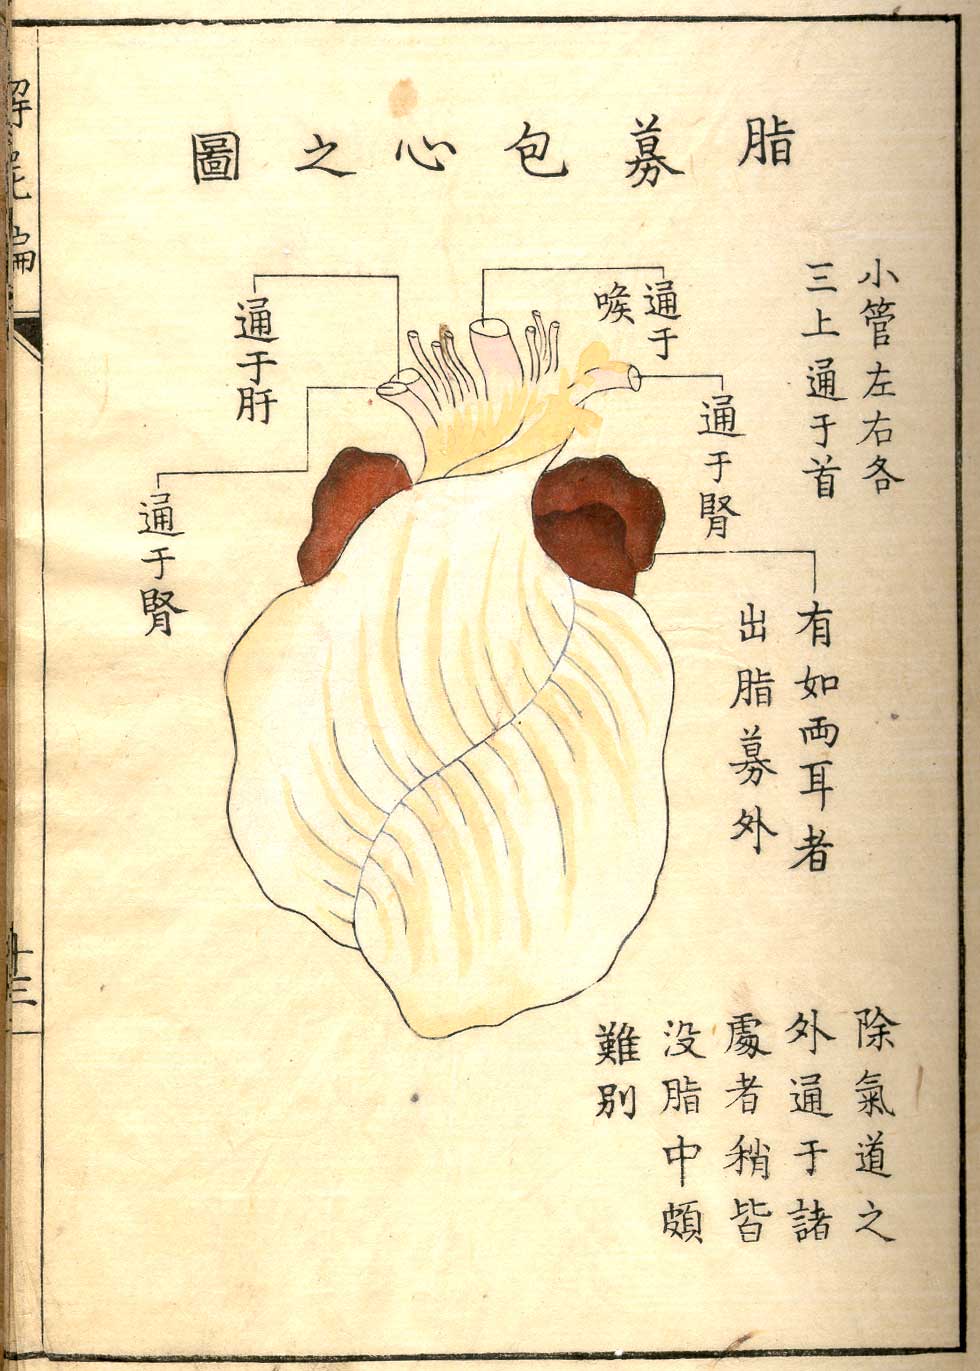 脂募包心之圖
小管左右各
三上通于首
通于
喉
通于腎
有如両耳者
出脂募外
通于肝
通于腎
除氣道之
外通于諸
處者稍皆
没脂中頗
難別
解屍編
十三